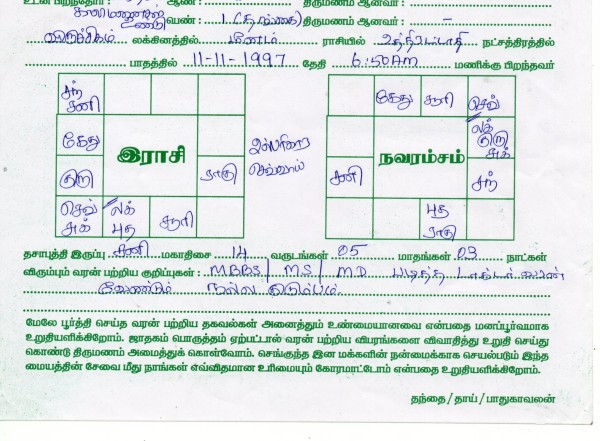 உடன் பிறந்தோர் : ஆண் : திருமணம் ஆனவர் :
பெண் : 1 (தங்கை) திருமணம் ஆனவர் : -
விருச்சிகம் லக்கினத்தில் மீனம் ராசியில் உத்திரட்டாதி நட்சத்திரத்தில்
பாதத்தில் 11-11-1997 தேதி 6:50AM மணிக்கு பிறந்தவர்
சந் சனி
கேது
குரு
செவ் சுக்
லக் புத
சூரி
ராகு
இராசி
செவ்வாய்
கேது
சூரி
செவ்
லக் குரு சுக்
சனி
சந்
புத ராகு
நவரம்சம்
தசாபுத்தி இருப்பு சனி மகாதிசை 14 வருடங்கள் 05 மாதங்கள் 03 நாட்கள்
விரும்பும் வரன் பற்றிய குறிப்புகள் : MBBS/ MS/ MD படித்த டாக்டர் வரன்
வேண்டும் நல்ல குடும்பம்
மேலே பூர்த்தி செய்த வரன் பற்றிய தகவல்கள் அனைத்தும் உண்மையானவை என்பதை மனப்பூர்வமாக
உறுதியளிக்கிறோம். ஜாதகம் பொருத்தம் ஏற்பட்டால் வரன் பற்றிய விபரங்களை விவாதித்து உறுதி செய்து
கொண்டு திருமணம் அமைத்துக் கொள்வோம். செங்குந்த இன மக்களின் நன்மைக்காக செயல்படும் இந்த
மையத்தின் சேவை மீது நாங்கள் எவ்விதமான உரிமையும் கோரமாட்டோம் என்பதை உறுதியளிக்கிறோம்.
தந்தை / தாய் / பாதுகாவலன்